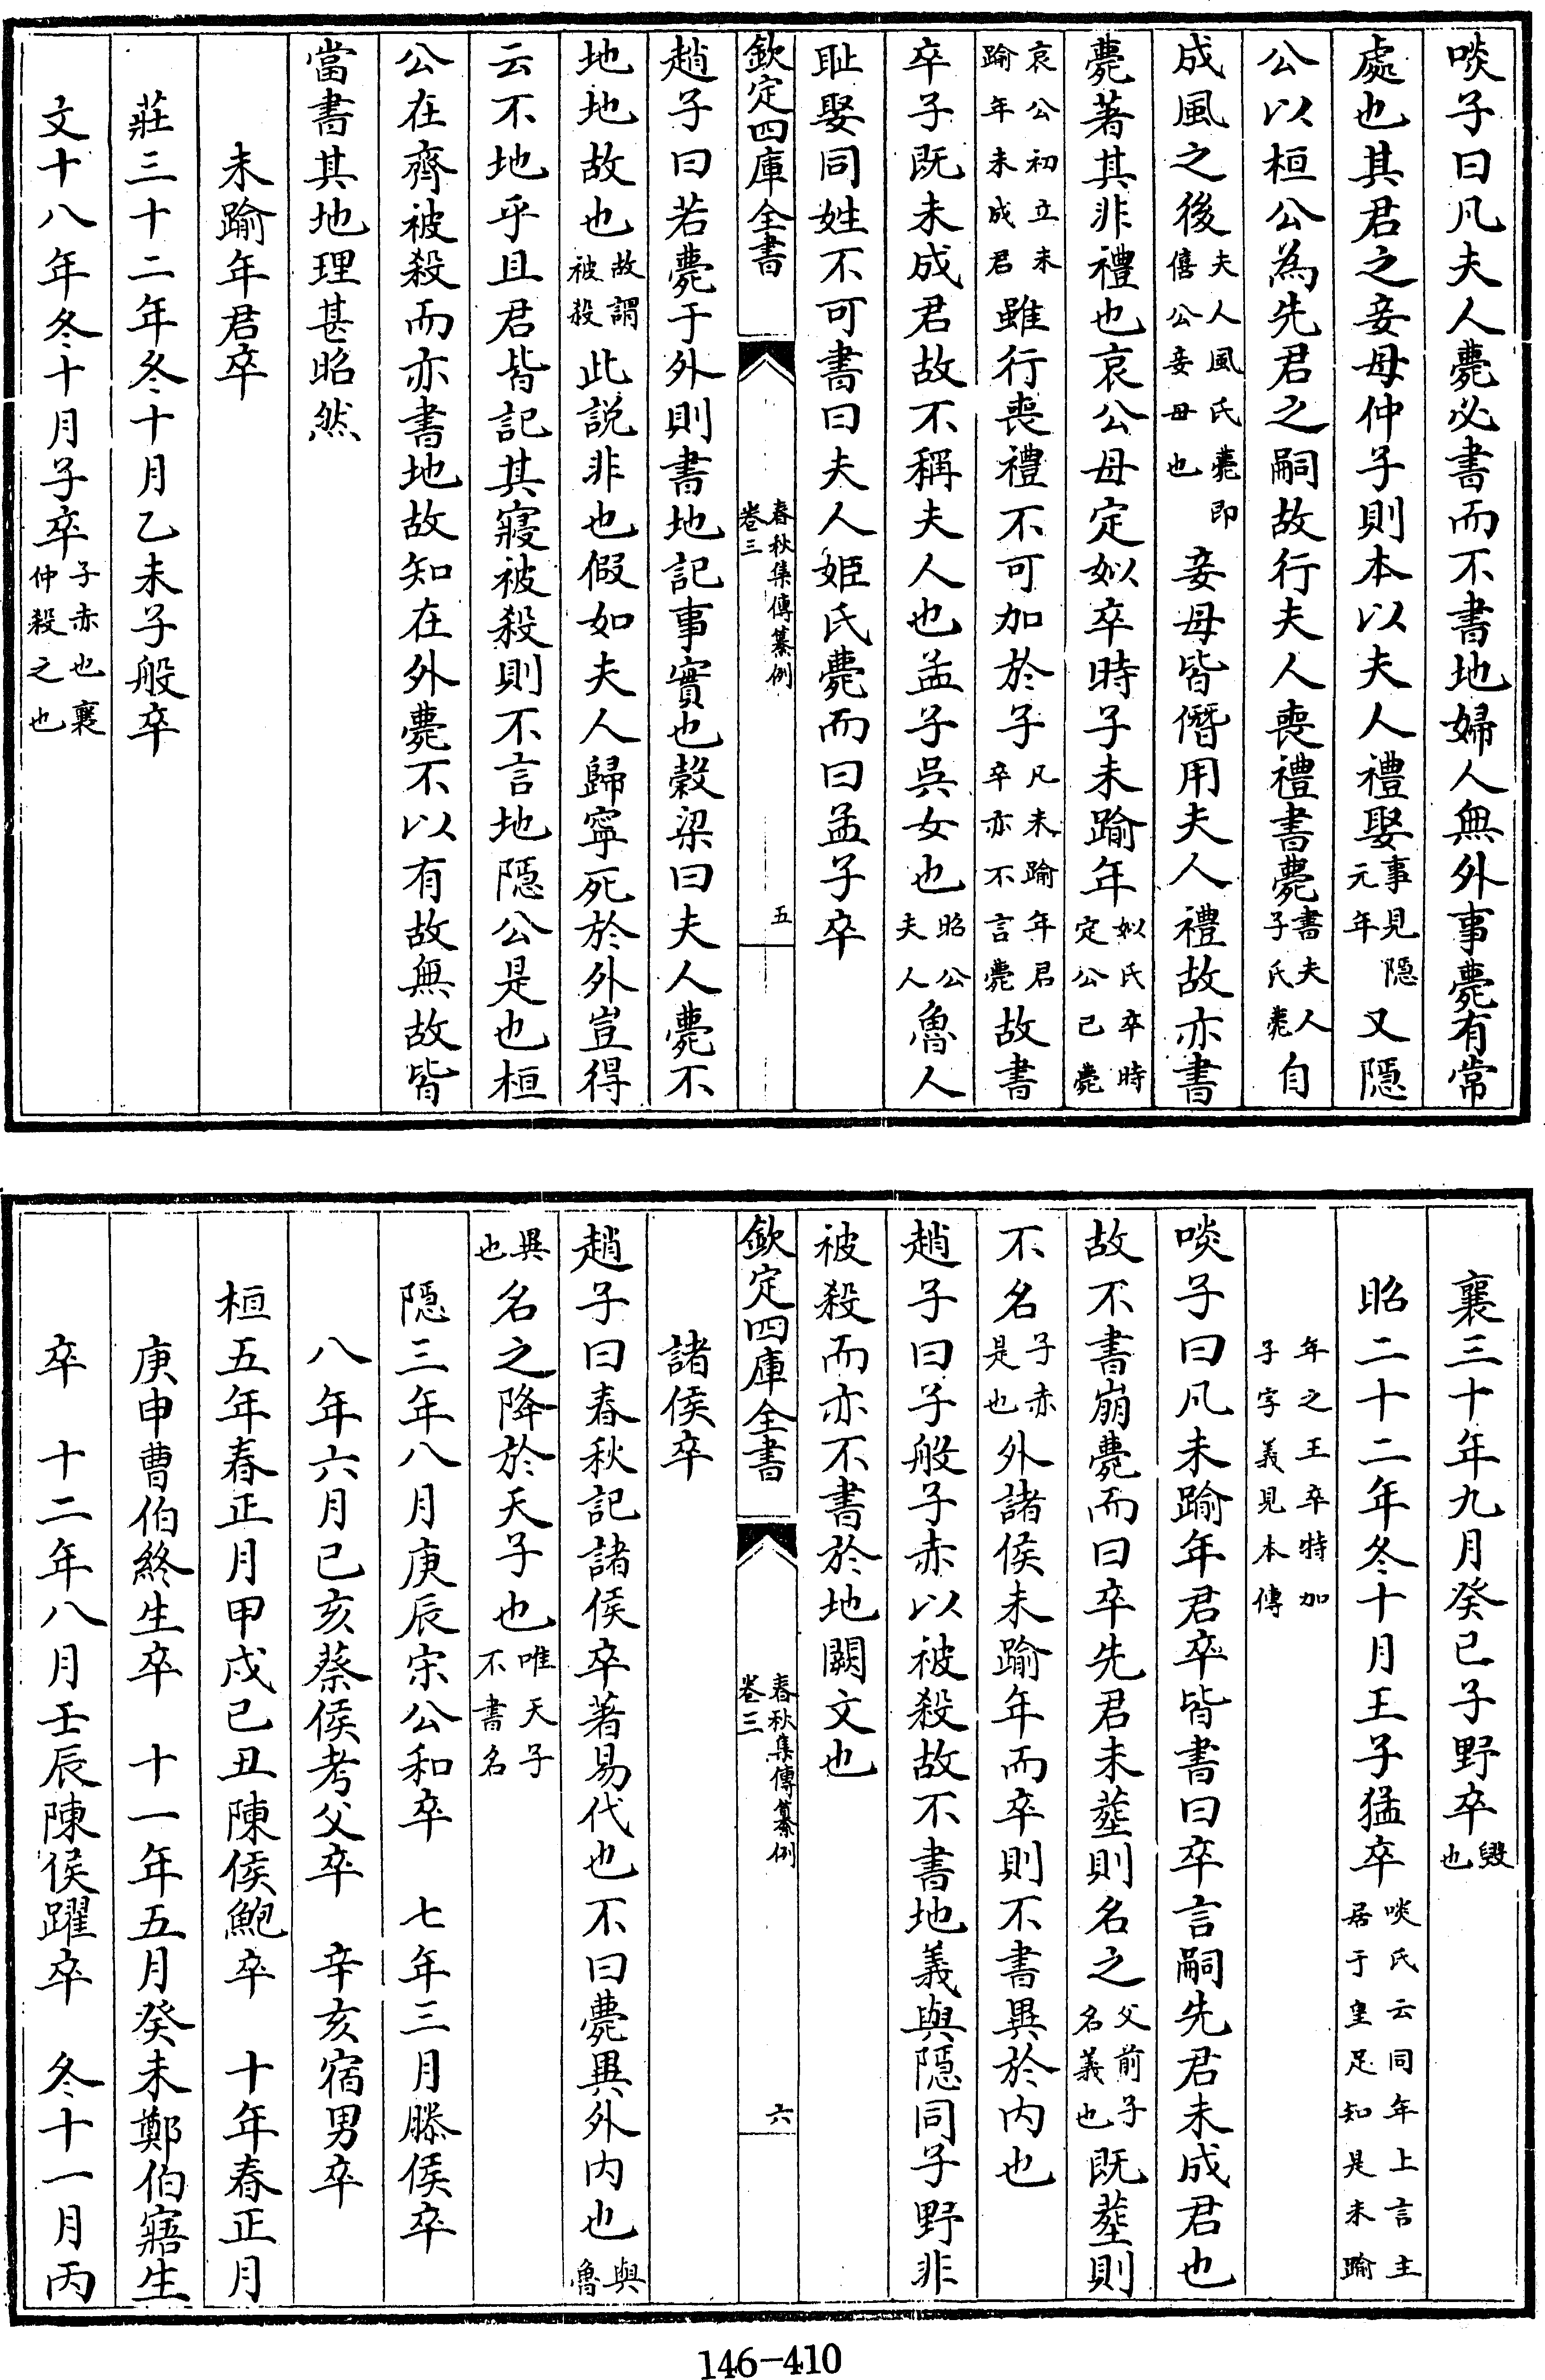 啖子曰凡夫人薨必書而不書地婦人無外事薨有常
處也其君之妾母仲子則本以夫人禮娶事見隠元年又隠
公以桓公為先君之嗣故行夫人喪禮書薨書夫人子氏薨自
成風之後夫人風氏薨即僖公妾母也妾母皆僭用夫人禮故亦書
薨著其非禮也哀公母定姒卒時子未踰年姒氏卒時定公已薨
哀公初立未踰年未成君雖行喪禮不可加於子凡未踰年君卒亦不言薨故書
卒子既未成君故不稱夫人也孟子吳女也昭公夫人魯人
耻娶同姓不可書曰夫人姬氏薨而曰孟子卒
欽定四庫全書
春秋集傳纂例
卷三
五
趙子曰若薨于外則書地記事實也榖梁曰夫人薨不
地地故也故謂被殺此説非也假如夫人歸寧死於外豈得
云不地乎且君皆記其寢被殺則不言地隠公是也桓
公在齊被殺而亦書地故知在外薨不以有故無故皆
當書其地理甚昭然
未踰年君卒
莊三十二年冬十月乙未子般卒
文十八年冬十月子卒子赤也襄仲殺之也
襄三十年九月癸巳子野卒毀也
昭二十二年冬十月王子猛卒啖氏云同年上言王居于皇足知是未踰
年之王卒特加子字義見本傳
啖子曰凡未踰年君卒皆書曰卒言嗣先君未成君也
故不書崩薨而曰卒先君未塟則名之父前子名義也既塟則
不名子赤是也外諸侯未踰年而卒則不書異於內也
趙子曰子般子赤以被殺故不書地義與隠同子野非
被殺而亦不書於地闕文也
欽定四庫全書
春秋集傳纂例
卷三
六
諸侯卒
趙子曰春秋記諸侯卒著易代也不曰薨異外內也與魯
異也名之降於天子也唯天子不書名
隠三年八月庚辰宋公和卒　七年三月滕侯卒
八年六月已亥蔡侯考父卒　辛亥宿男卒
桓五年春正月甲戍已丑陳侯鮑卒　十年春正月
庚申曹伯終生卒　十一年五月癸未鄭伯寤生
卒　十二年八月壬辰陳侯躍卒　冬十一月丙
146-410